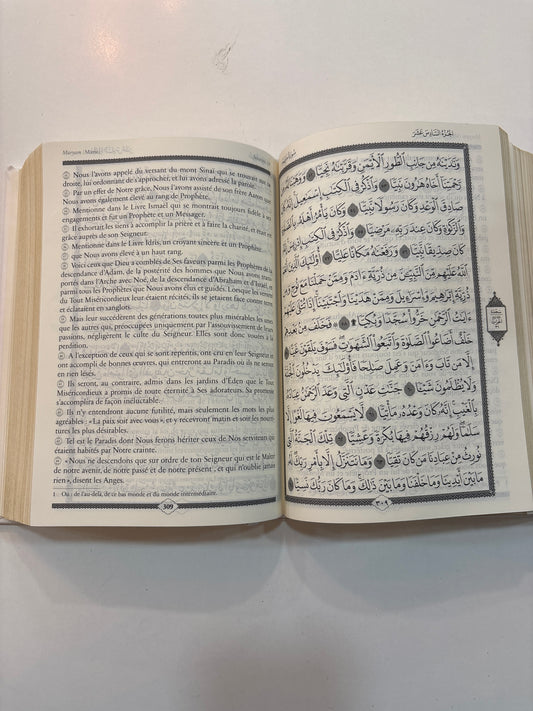 Maryam (Marie)
52 Nous l'avons appelé du versant du mont Sinaï qui se trouvait à sa
droite, lui ordonnant de s'approcher, et lui avons adressé la parole.
53 Par un effet de Notre grâce, Nous l'avons assisté de son frère Aaron que
Nous avons également élevé au rang de Prophète.
54 Mentionne dans le Livre Ismaël qui se montrait toujours fidèle à ses
engagements et fut un Prophète et un Messager.
55 Il exhortait les siens à accomplir la prière et à faire la charité, et était en
grâce auprès de son Seigneur.
56 Mentionne dans le Livre Idrîs, un croyant sincère et un Prophète
57 que Nous avons élevé à un haut rang.
58 Voici ceux que Dieu a comblés de Ses faveurs parmi les Prophètes de la
descendance d'Adam, de la postérité des hommes que Nous avons trans-
portés dans l'Arche avec Noé, de la descendance d'Abraham et d'Israël, et
parmi tous les Prophètes que Nous avons élus et guidés. Lorsque les versets du
Tout Miséricordieux leur étaient récités, ils se jetaient face contre terre
et éclataient en sanglots.
59 Mais leur succédèrent des générations toutes plus misérables les unes
que les autres qui, préoccupées uniquement par l'assouvissement de leurs
passions, négligèrent le culte du Seigneur. Elles sont donc vouées à la
perdition.
60 A l'exception de ceux qui se sont repentis, ont cru en leur Seigneur et
ont accompli de bonnes œuvres, qui entreront au Paradis où ils ne seront
en rien lésés.
61 Ils seront, au contraire, admis dans les jardins d'Eden que le Tout
Miséricordieux a promis de toute éternité à Ses adorateurs. Sa promesse
s'accomplira de façon inéluctable.
62 Ils n'y entendront aucune futilité, mais seulement les mots les plus
agréables : « La paix soit avec vous », et y recevront matin et soir les nourri-
tures les plus désirables.
63 Tel est le Paradis dont Nous ferons hériter ceux de Nos serviteurs qui
étaient habités par Notre crainte.
64 « Nous ne descendons que sur ordre de ton Seigneur qui est le Maître
de notre avenir, de notre passé et de notre présent¹, et qui n'oublie jamais
rien », disent les Anges.
1 Ou : de l'au-delà, de ce bas monde et du monde intermédiaire.
309
الجزء السادس عشر
وَنَٰدَيْنَٰهُ مِن جَانِبِ ٱلطُّورِ ٱلْأَيْمَنِ وَقَرَّبْنَٰهُ نَجِيًّا ٥٢ وَوَهَبْنَا لَهُۥ مِن
رَّحْمَتِنَآ أَخَاهُ هَٰرُونَ نَبِيًّا ٥٣ وَٱذْكُرْ فِى ٱلْكِتَٰبِ إِسْمَٰعِيلَ إِنَّهُۥ كَانَ
صَادِقَ ٱلْوَعْدِ وَكَانَ رَسُولًا نَّبِيًّا ٥٤ وَكَانَ يَأْمُرُ أَهْلَهُۥ بِٱلصَّلَوٰةِ
وَٱلزَّكَوٰةِ وَكَانَ عِندَ رَبِّهِۦ مَرْضِيًّا ٥٥ وَٱذْكُرْ فِى ٱلْكِتَٰبِ إِدْرِيسَ إِنَّهُۥ
كَانَ صِدِّيقًا نَّبِيًّا ٥٦ وَرَفَعْنَٰهُ مَكَانًا عَلِيًّا ٥٧ أُو۟لَٰٓئِكَ ٱلَّذِينَ أَنْعَمَ
ٱللَّهُ عَلَيْهِم مِّنَ ٱلنَّبِيِّۦنَ مِن ذُرِّيَّةِ ءَادَمَ وَمِمَّنْ حَمَلْنَا مَعَ نُوحٍ وَمِن
ذُرِّيَّةِ إِبْرَٰهِيمَ وَإِسْرَٰٓءِيلَ وَمِمَّنْ هَدَيْنَا وَٱجْتَبَيْنَآ إِذَا تُتْلَىٰ عَلَيْهِمْ
ءَايَٰتُ ٱلرَّحْمَٰنِ خَرُّوا۟ سُجَّدًا وَبُكِيًّا ۩ ٥٨ ۞ فَخَلَفَ مِنۢ بَعْدِهِمْ
خَلْفٌ أَضَاعُوا۟ ٱلصَّلَوٰةَ وَٱتَّبَعُوا۟ ٱلشَّهَوَٰتِ فَسَوْفَ يَلْقَوْنَ غَيًّا ٥٩
إِلَّا مَن تَابَ وَءَامَنَ وَعَمِلَ صَٰلِحًا فَأُو۟لَٰٓئِكَ يَدْخُلُونَ ٱلْجَنَّةَ
وَلَا يُظْلَمُونَ شَيْـًٔا ٦٠ جَنَّٰتِ عَدْنٍ ٱلَّتِى وَعَدَ ٱلرَّحْمَٰنُ عِبَادَهُۥ
بِٱلْغَيْبِ إِنَّهُۥ كَانَ وَعْدُهُۥ مَأْتِيًّا ٦١ لَّا يَسْمَعُونَ فِيهَا لَغْوًا إِلَّا
سَلَٰمًا وَلَهُمْ رِزْقُهُمْ فِيهَا بُكْرَةً وَعَشِيًّا ٦٢ تِلْكَ ٱلْجَنَّةُ ٱلَّتِى
نُورِثُ مِنْ عِبَادِنَا مَن كَانَ تَقِيًّا ٦٣ وَمَا نَتَنَزَّلُ إِلَّا بِأَمْرِ رَبِّكَ لَهُۥ
مَا بَيْنَ أَيْدِينَا وَمَا خَلْفَنَا وَمَا بَيْنَ ذَٰلِكَ وَمَا كَانَ رَبُّكَ نَسِيًّا ٦٤
٣٠٩